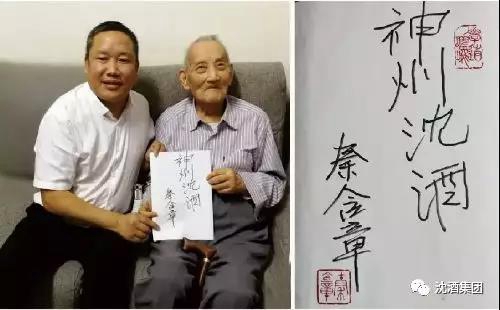 神州沈酒
秦含章
神州沈酒
秦含章
沈酒集团